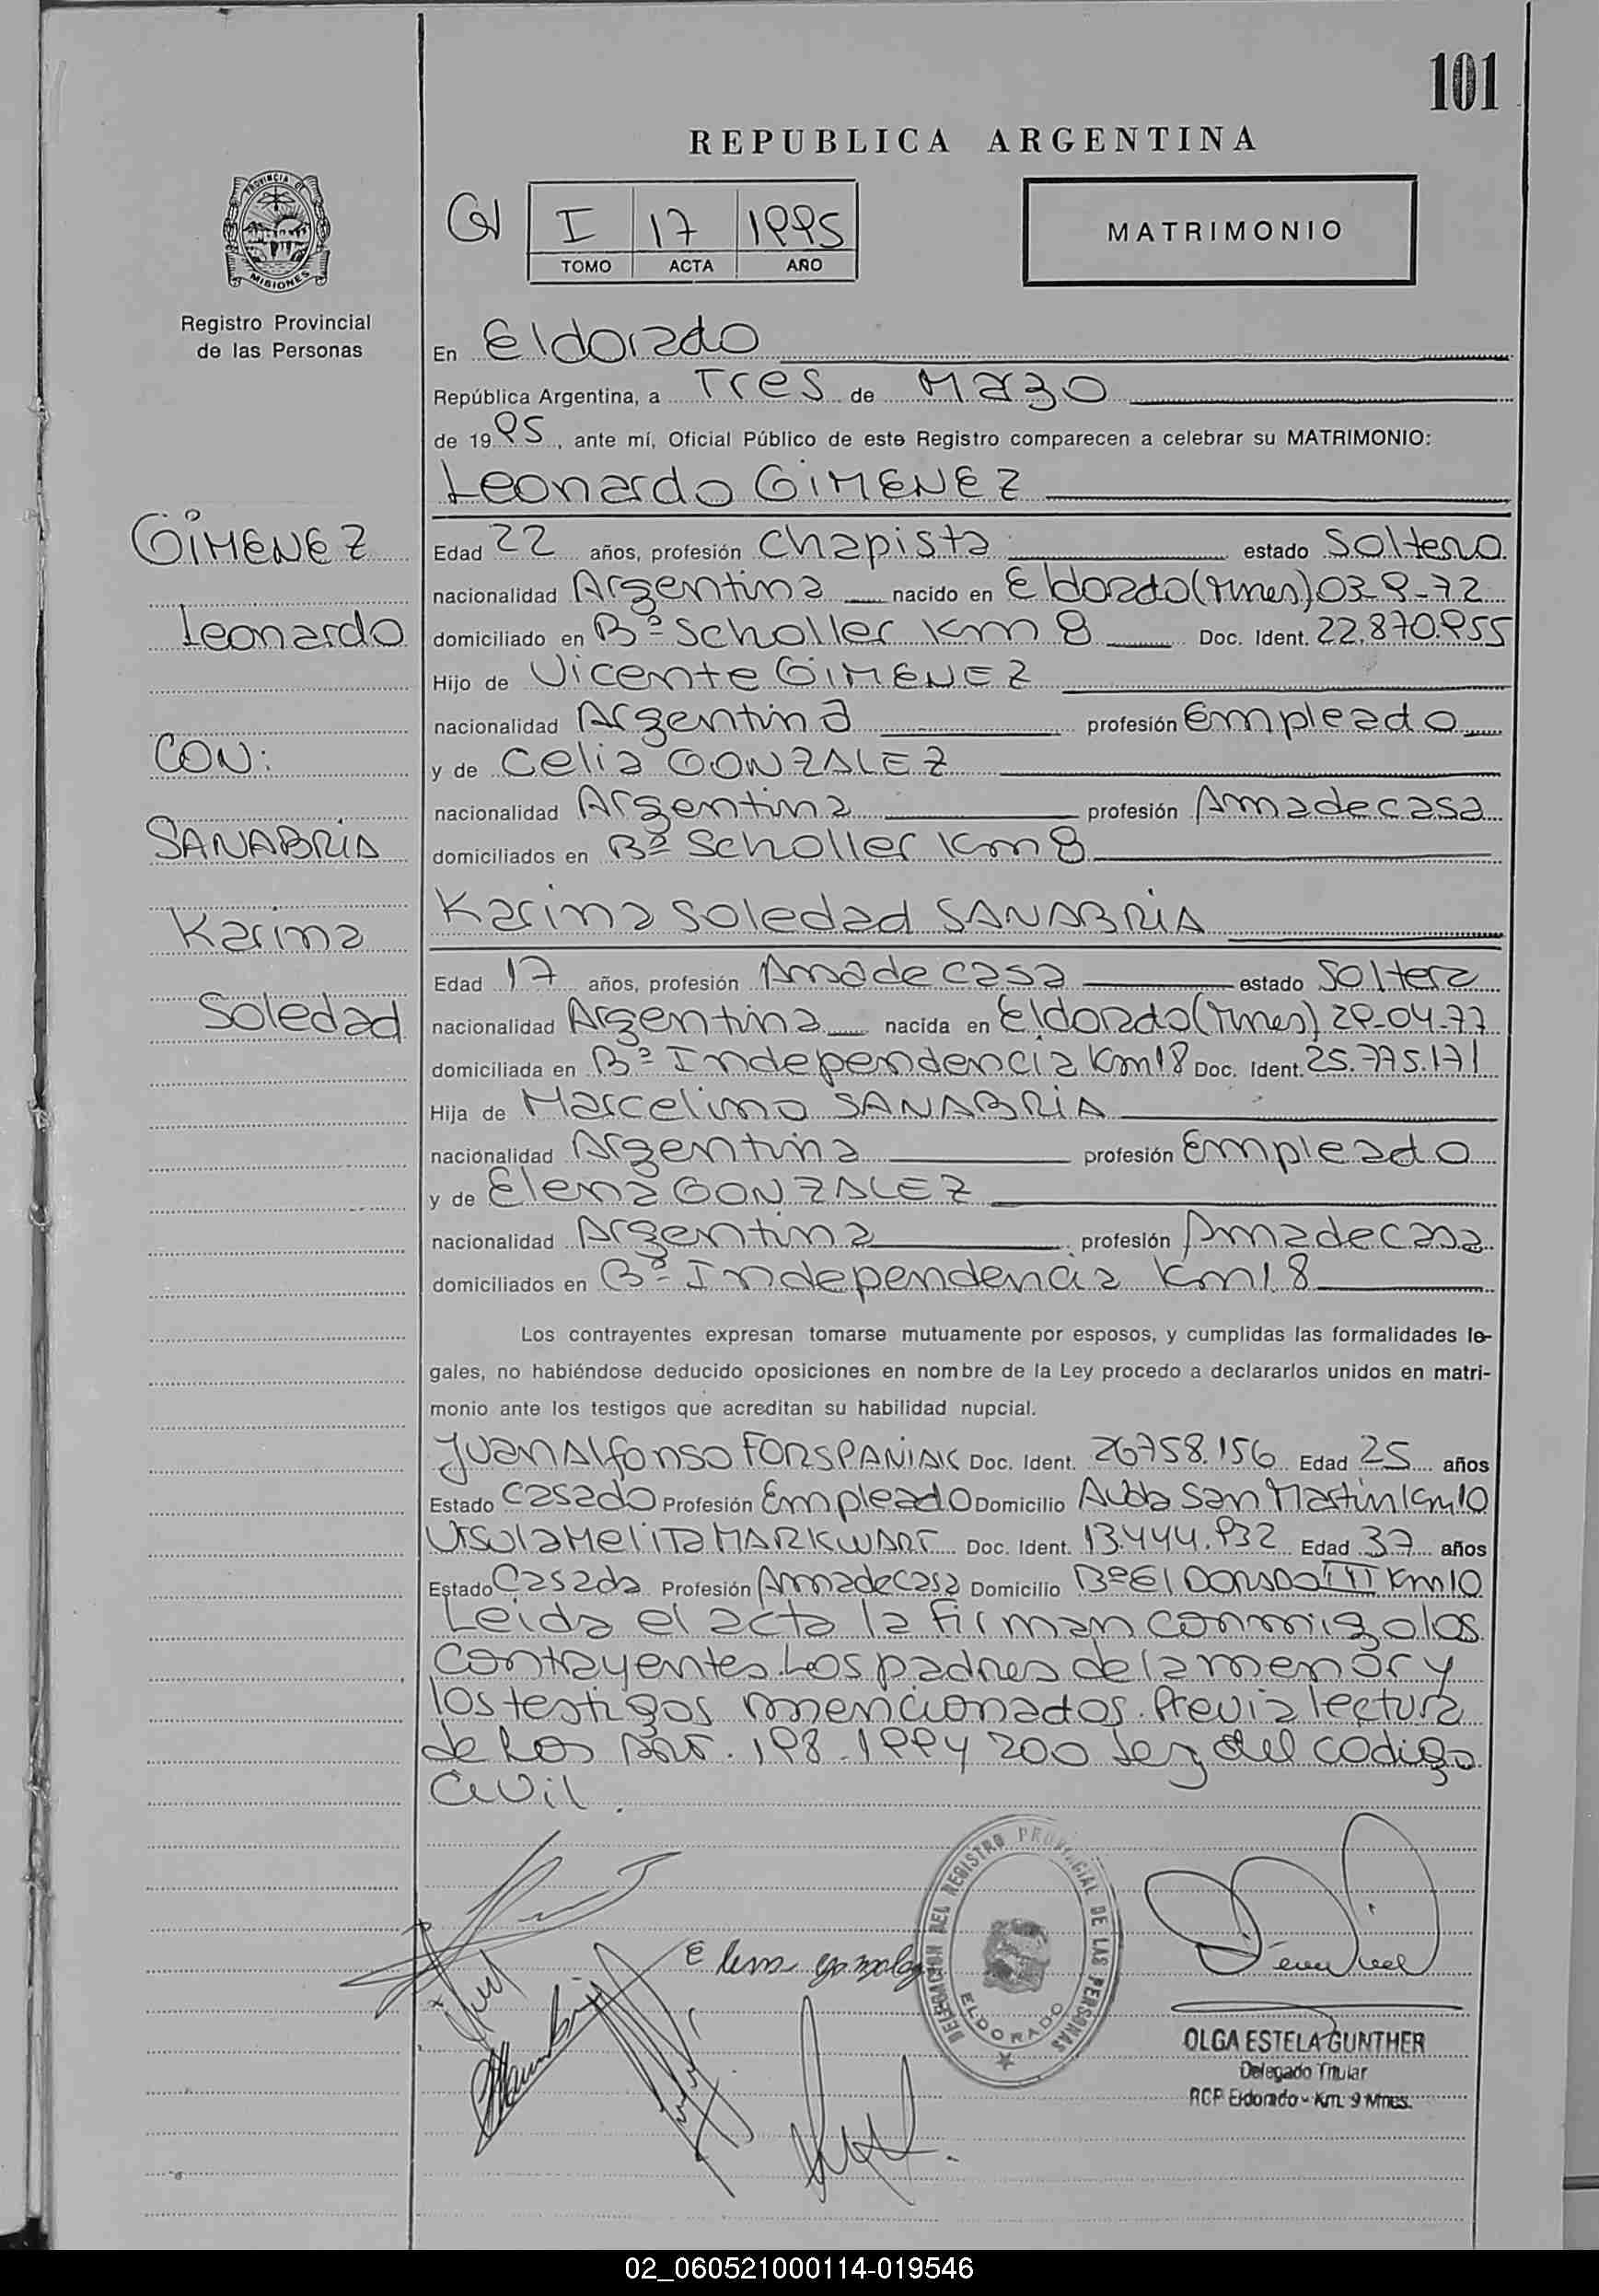 101
REPUBLICA ARGENTINA
PROVINCIA DE
MISIONES
Registro Provincial
de las Personas
I 17 1995
TOMO ACTA AÑO
MATRIMONIO
En Eldorado
República Argentina, a Tres de Marzo
de 1995, ante mí, Oficial Público de este Registro comparecen a celebrar su MATRIMONIO:
Leonardo GIMENEZ
GIMENEZ
Edad 22 años, profesión Chapista estado Soltero
nacionalidad Argentina nacido en Eldorado (Mnes) 03-9-72
Leonardo
domiciliado en Bº Scholler Km 8 Doc. Ident. 22.870.955
Hijo de Vicente GIMENEZ
nacionalidad Argentina profesión Empleado
CON:
y de Celia GONZALEZ
nacionalidad Argentina profesión Amadecasa
SANABRIA
domiciliados en Bº Scholler Km 8
Karina
Karina Soledad SANABRIA
Edad 17 años, profesión Amadecasa estado Soltera
Soledad
nacionalidad Argentina nacida en Eldorado (Mnes) 29-04-77
domiciliada en Bº Independencia Km18 Doc. Ident. 25.775.171
Hija de Marcelino SANABRIA
nacionalidad Argentina profesión Empleado
y de Elena GONZALEZ
nacionalidad Argentina profesión Amadecasa
domiciliados en Bº Independencia Km18
Los contrayentes expresan tomarse mutuamente por esposos, y cumplidas las formalidades le-
gales, no habiéndose deducido oposiciones en nombre de la Ley procedo a declararlos unidos en matri-
monio ante los testigos que acreditan su habilidad nupcial.
Juan Alfonso FORSPANIAK Doc. Ident. 26758.156 Edad 25 años
Estado Casado Profesión Empleado Domicilio Avda San Martin Km10
Ursula Melita MARKWART Doc. Ident. 13.444.932 Edad 37 años
Estado Casada Profesión Amadecasa Domicilio Bº El DORADO III Km10
Leida el acta la firman conmigo los
contrayentes. Los padres de la menor y
los testigos mencionados. Previa lectura
de Los ART. 198-199 y 200 del codigo
Civil.
Elena gonzalez
DELEGACION DEL REGISTRO PROVINCIAL DE LAS PERSONAS
ELDORADO
OLGA ESTELA GUNTHER
Delegado Titular
RCP Eldorado - Km. 9 Mnes.
02_060521000114-019546